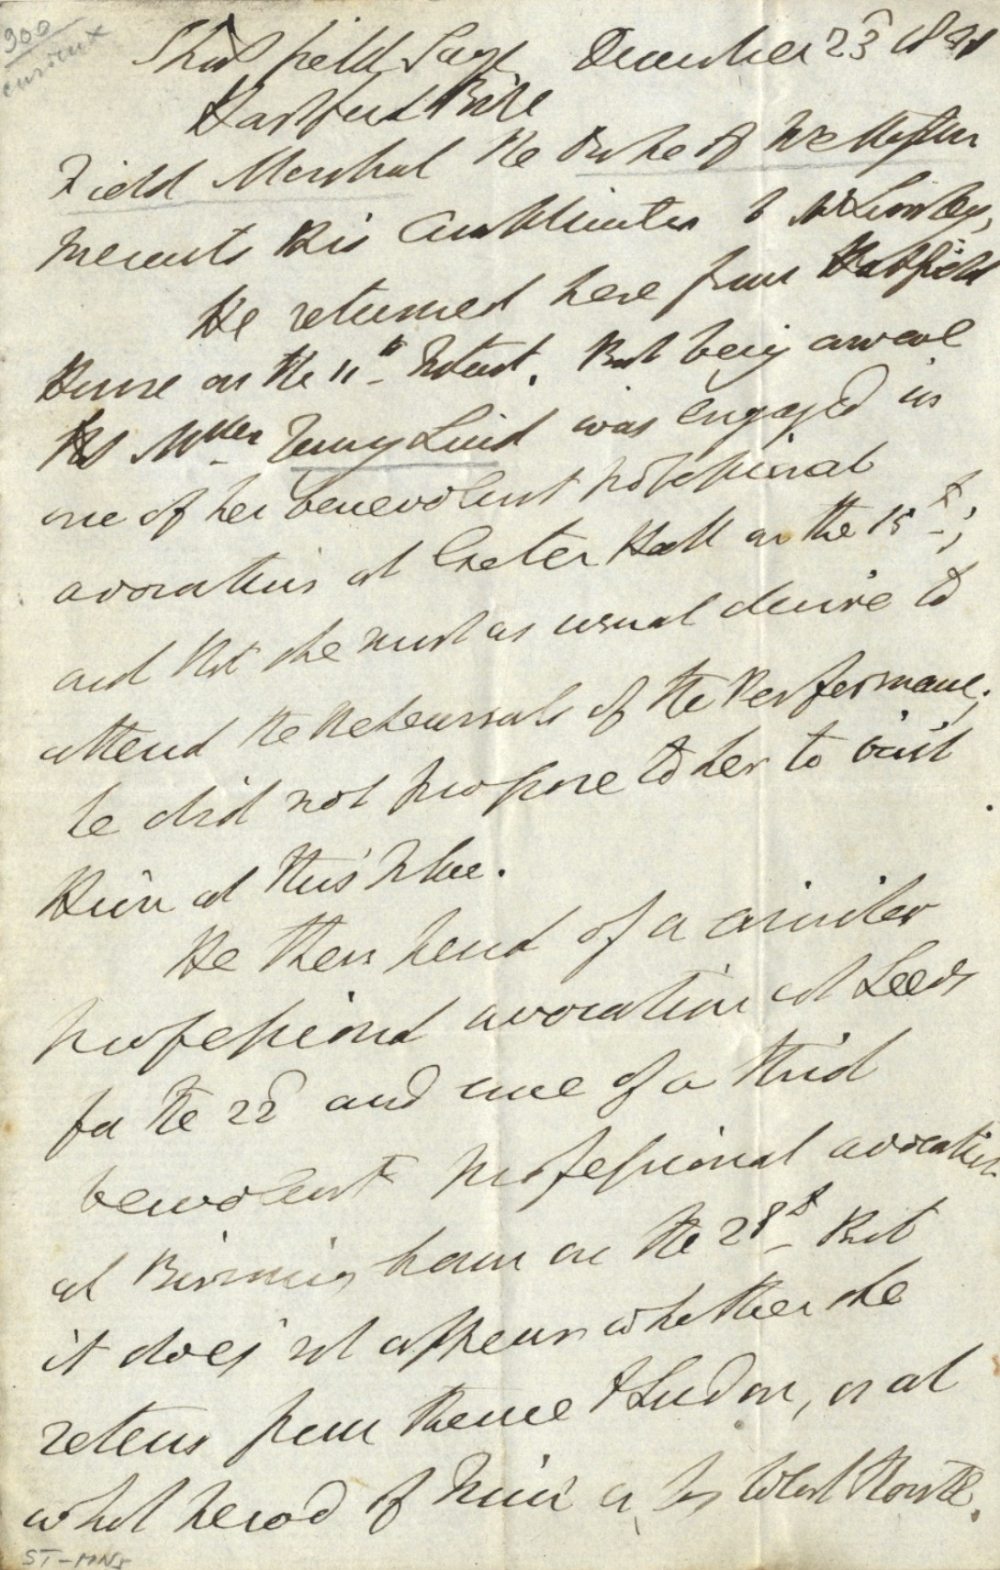 300
curieux
Strathfield Saye December 23 1848
Hartford Bridge
Field Marshal the Duke of Wellington
presents His Compliments to Mr Lumley,
He returned here from Hatfield
House on the 11th Instant. But being aware
that Mdlle Jenny Lind was engaged in
one of her benevolent professional
avocations at Exeter Hall on the 15th;
and that she must as usual desire to
attend the Rehearsals of the Performance;
he did not propose to her to visit
Him at this Place.
He then heard of a similar
professional avocation at Leeds
for the 22d and one of a third
benevolent professional avocation
at Birmingham on the 28th But
it does not appear whether she
returns from thence to London, or at
what period of time or by what Route.
ST-MNS